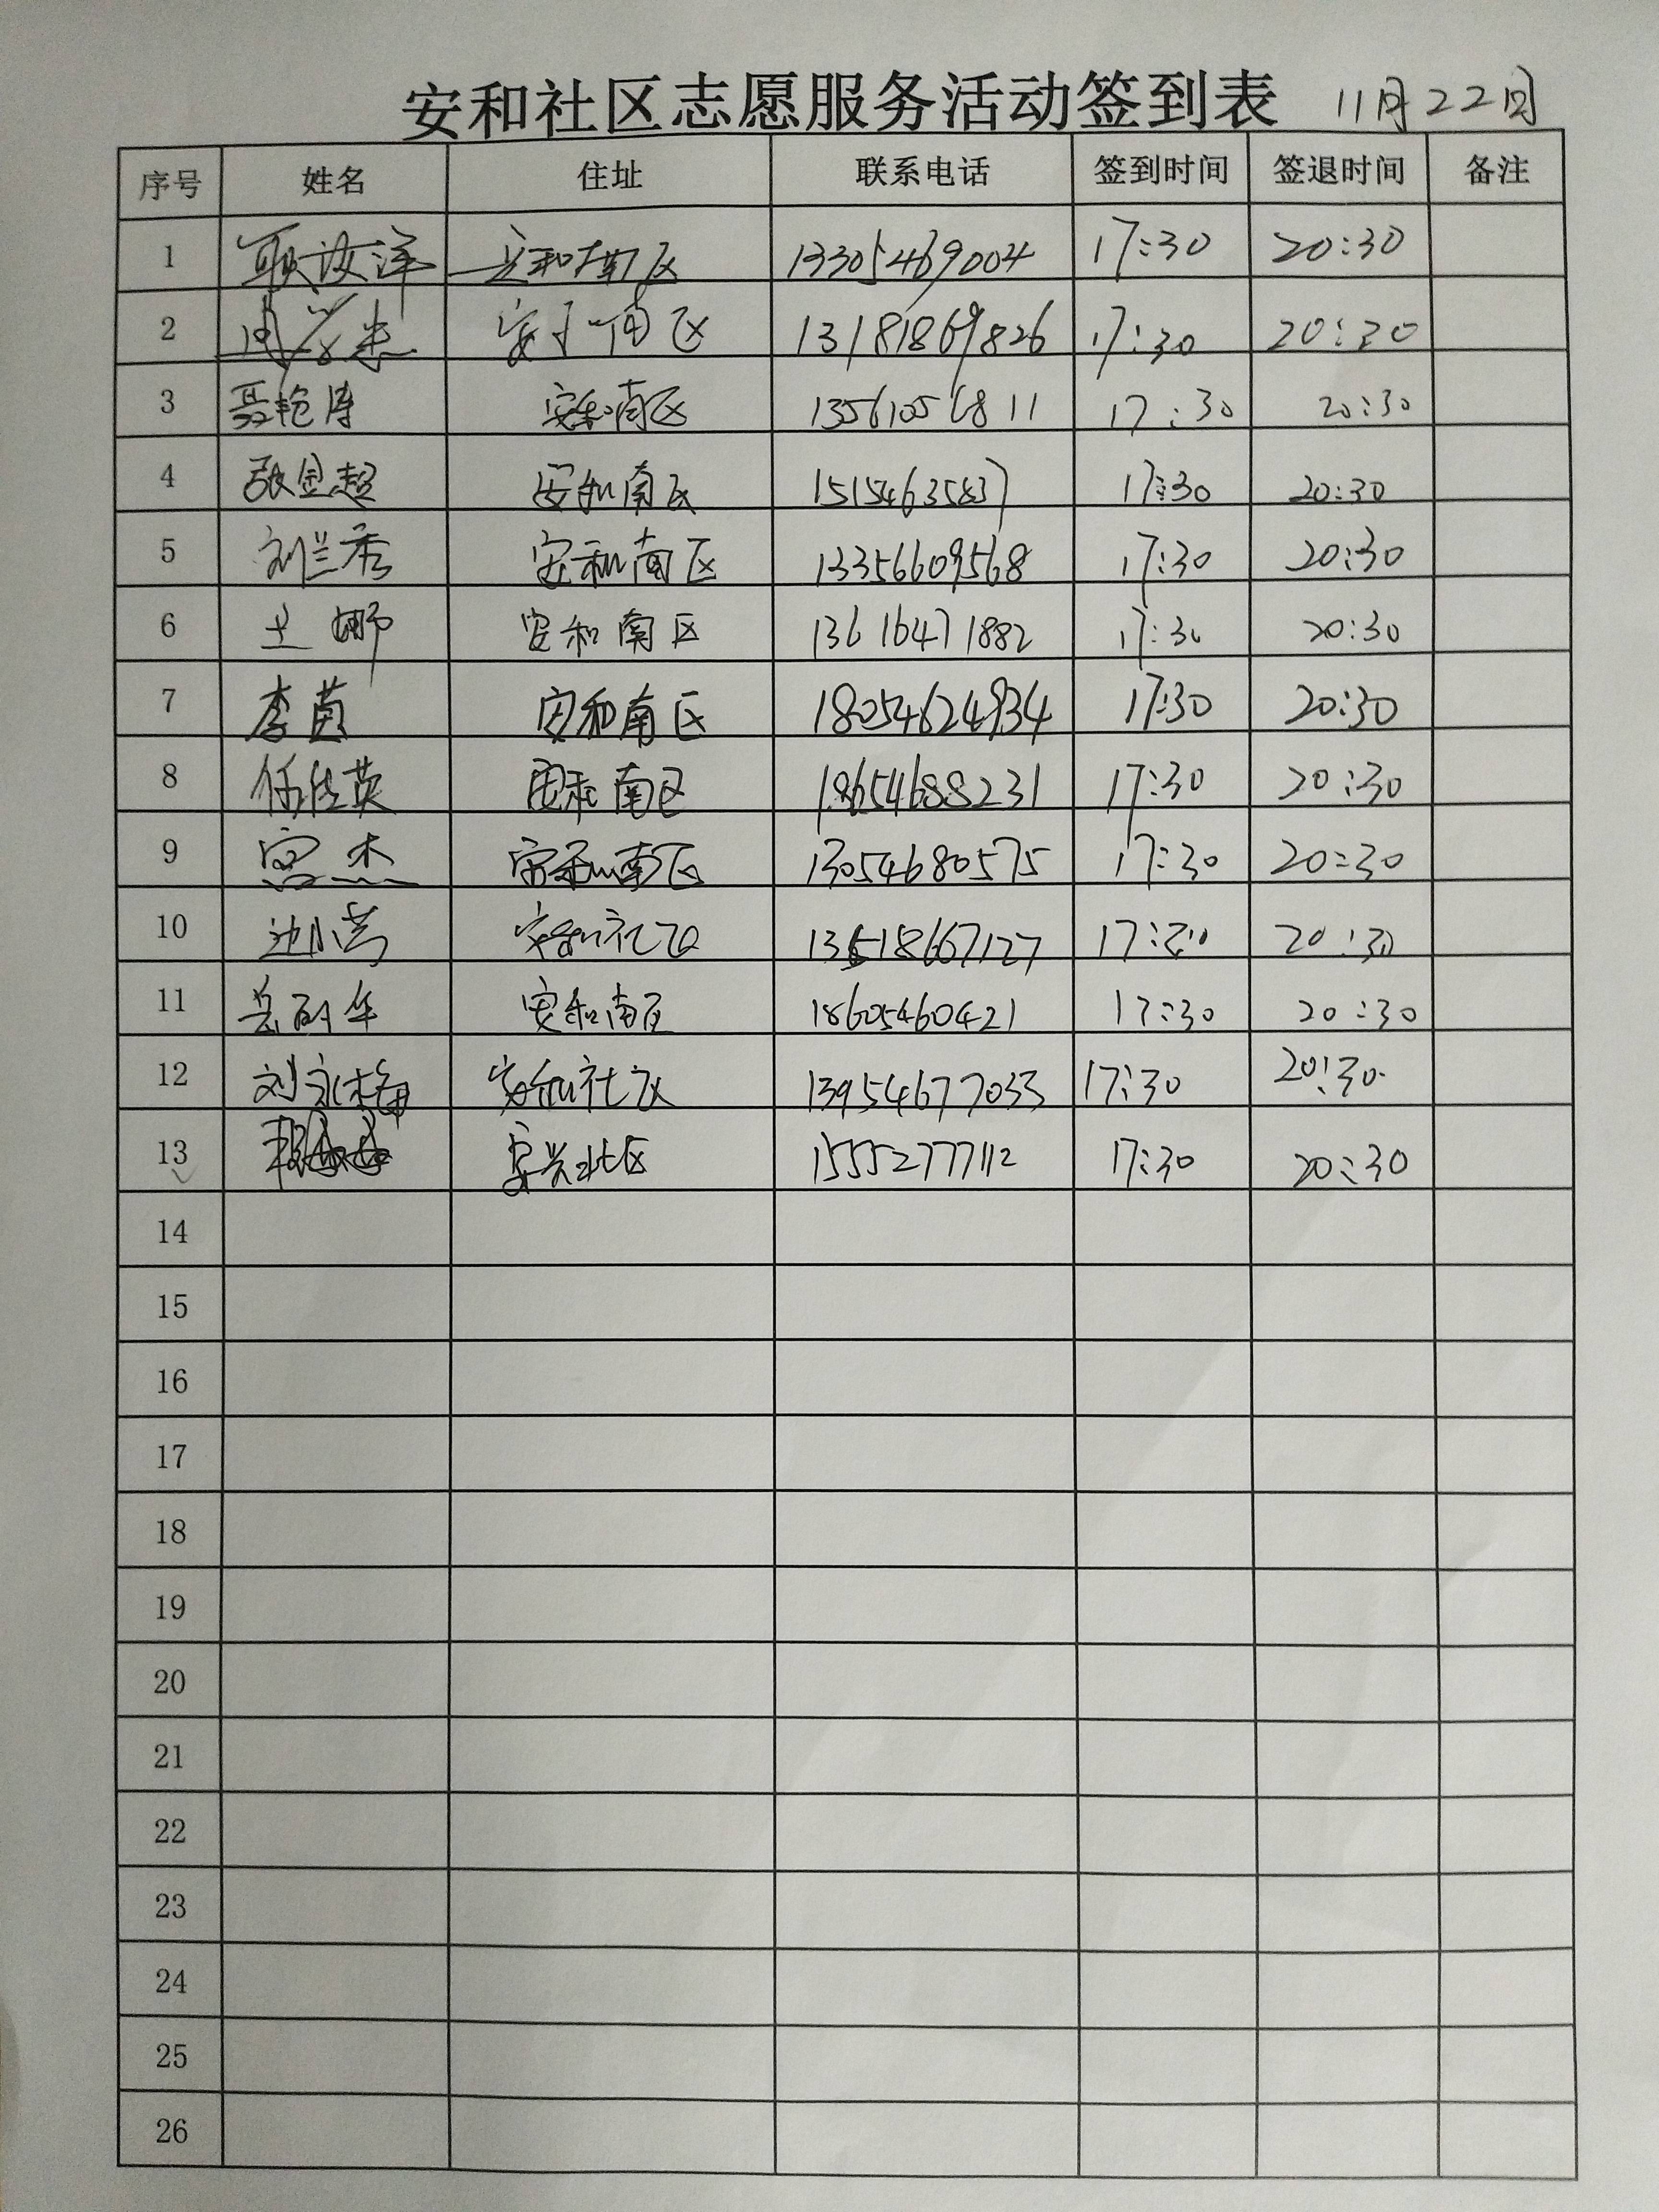 安和社区志愿服务活动签到表 11月22日
序号 姓名 住址 联系电话 签到时间 签退时间 备注
1 耿汝洋 安和南区 13305469004 17:30 20:30
2 周学忠 安和南区 13181869826 17:30 20:30
3 聂艳涛 安和南区 13561056811 17:30 20:30
4 张金超 安和南区 15154635837 17:30 20:30
5 刘兰秀 安和南区 13356609568 17:30 20:30
6 王娜 安和南区 13616471882 17:30 20:30
7 李茵 安和南区 18054624934 17:30 20:30
8 任佳英 安和南区 18654688231 17:30 20:30
9 宫杰 安和南区 13054680575 17:30 20:30
10 安和社区 17:30 20:30
11 安和南区 18605460421 17:30 20:30
12 刘永梅 安和社区 13954677033 17:30 20:30
13 安兴北区 15552777112 17:30 20:30
14
15
16
17
18
19
20
21
22
23
24
25
26